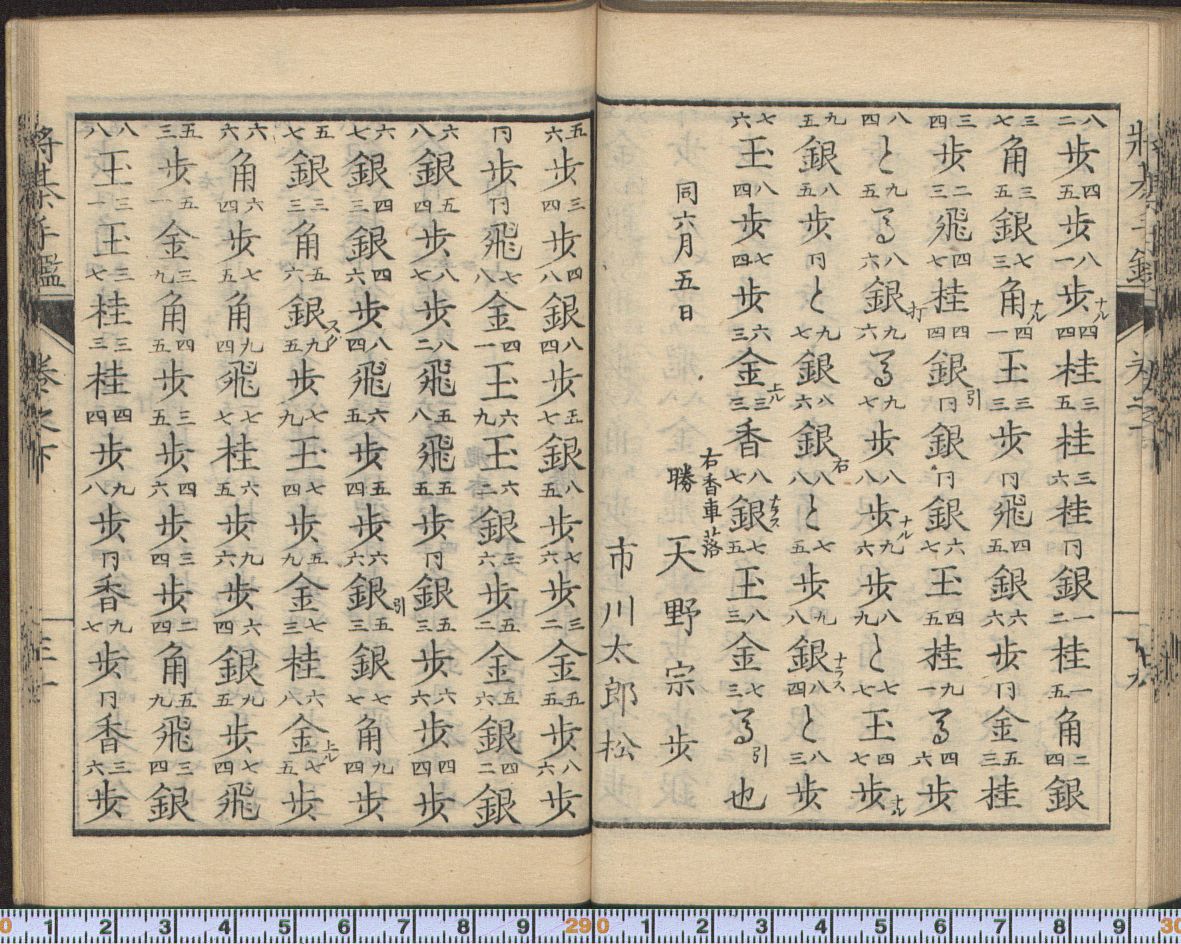 八二歩四五歩八一歩ナル四四桂三五桂三六桂同銀一二桂一五角二四銀
三七角三五銀七三角ナル四一玉三三歩同飛四五銀六六歩同金五三桂
三四歩二三飛四七桂四四銀引同銀同銀六七玉四五桂九一馬四六歩
八四と九五馬八六銀打九六馬九七歩八八歩ナル九六歩八九と七七玉四七歩ナル
九五銀八五歩同と九七銀八六銀右八八と七五歩銀ナラス八四と八三歩
七六玉八四歩七四歩六三金上ル三三香八七銀ナラス七五玉八三金七三馬引也
同六月五日
右香車落
勝 天野宗歩
市川太郎松
五六歩三四歩四八銀八四歩五七銀八五歩七六歩三二金五五歩八六歩
同歩同飛七八金四一玉六九玉六二銀三六歩五二金五六銀四二銀
六八銀五四歩八七歩八二飛五八飛五五歩同銀五三歩六六歩四四歩
六七銀四三銀四六歩八四飛六五歩五四歩六六銀引五三銀七七角九四歩
五七銀三三角五六銀スグ九五歩七九玉七四歩五九金七三桂六八金上ル七五歩
六六角六四歩七五角九四飛七七桂六五歩九六歩六四銀九五歩七四飛
五三歩五一金三九角四五歩三五歩四六歩三四歩二四角五九飛三四銀
八八玉三一玉三七桂三三桂四四歩九八歩同香九七歩同香三六歩
将棊手鑑 巻之下